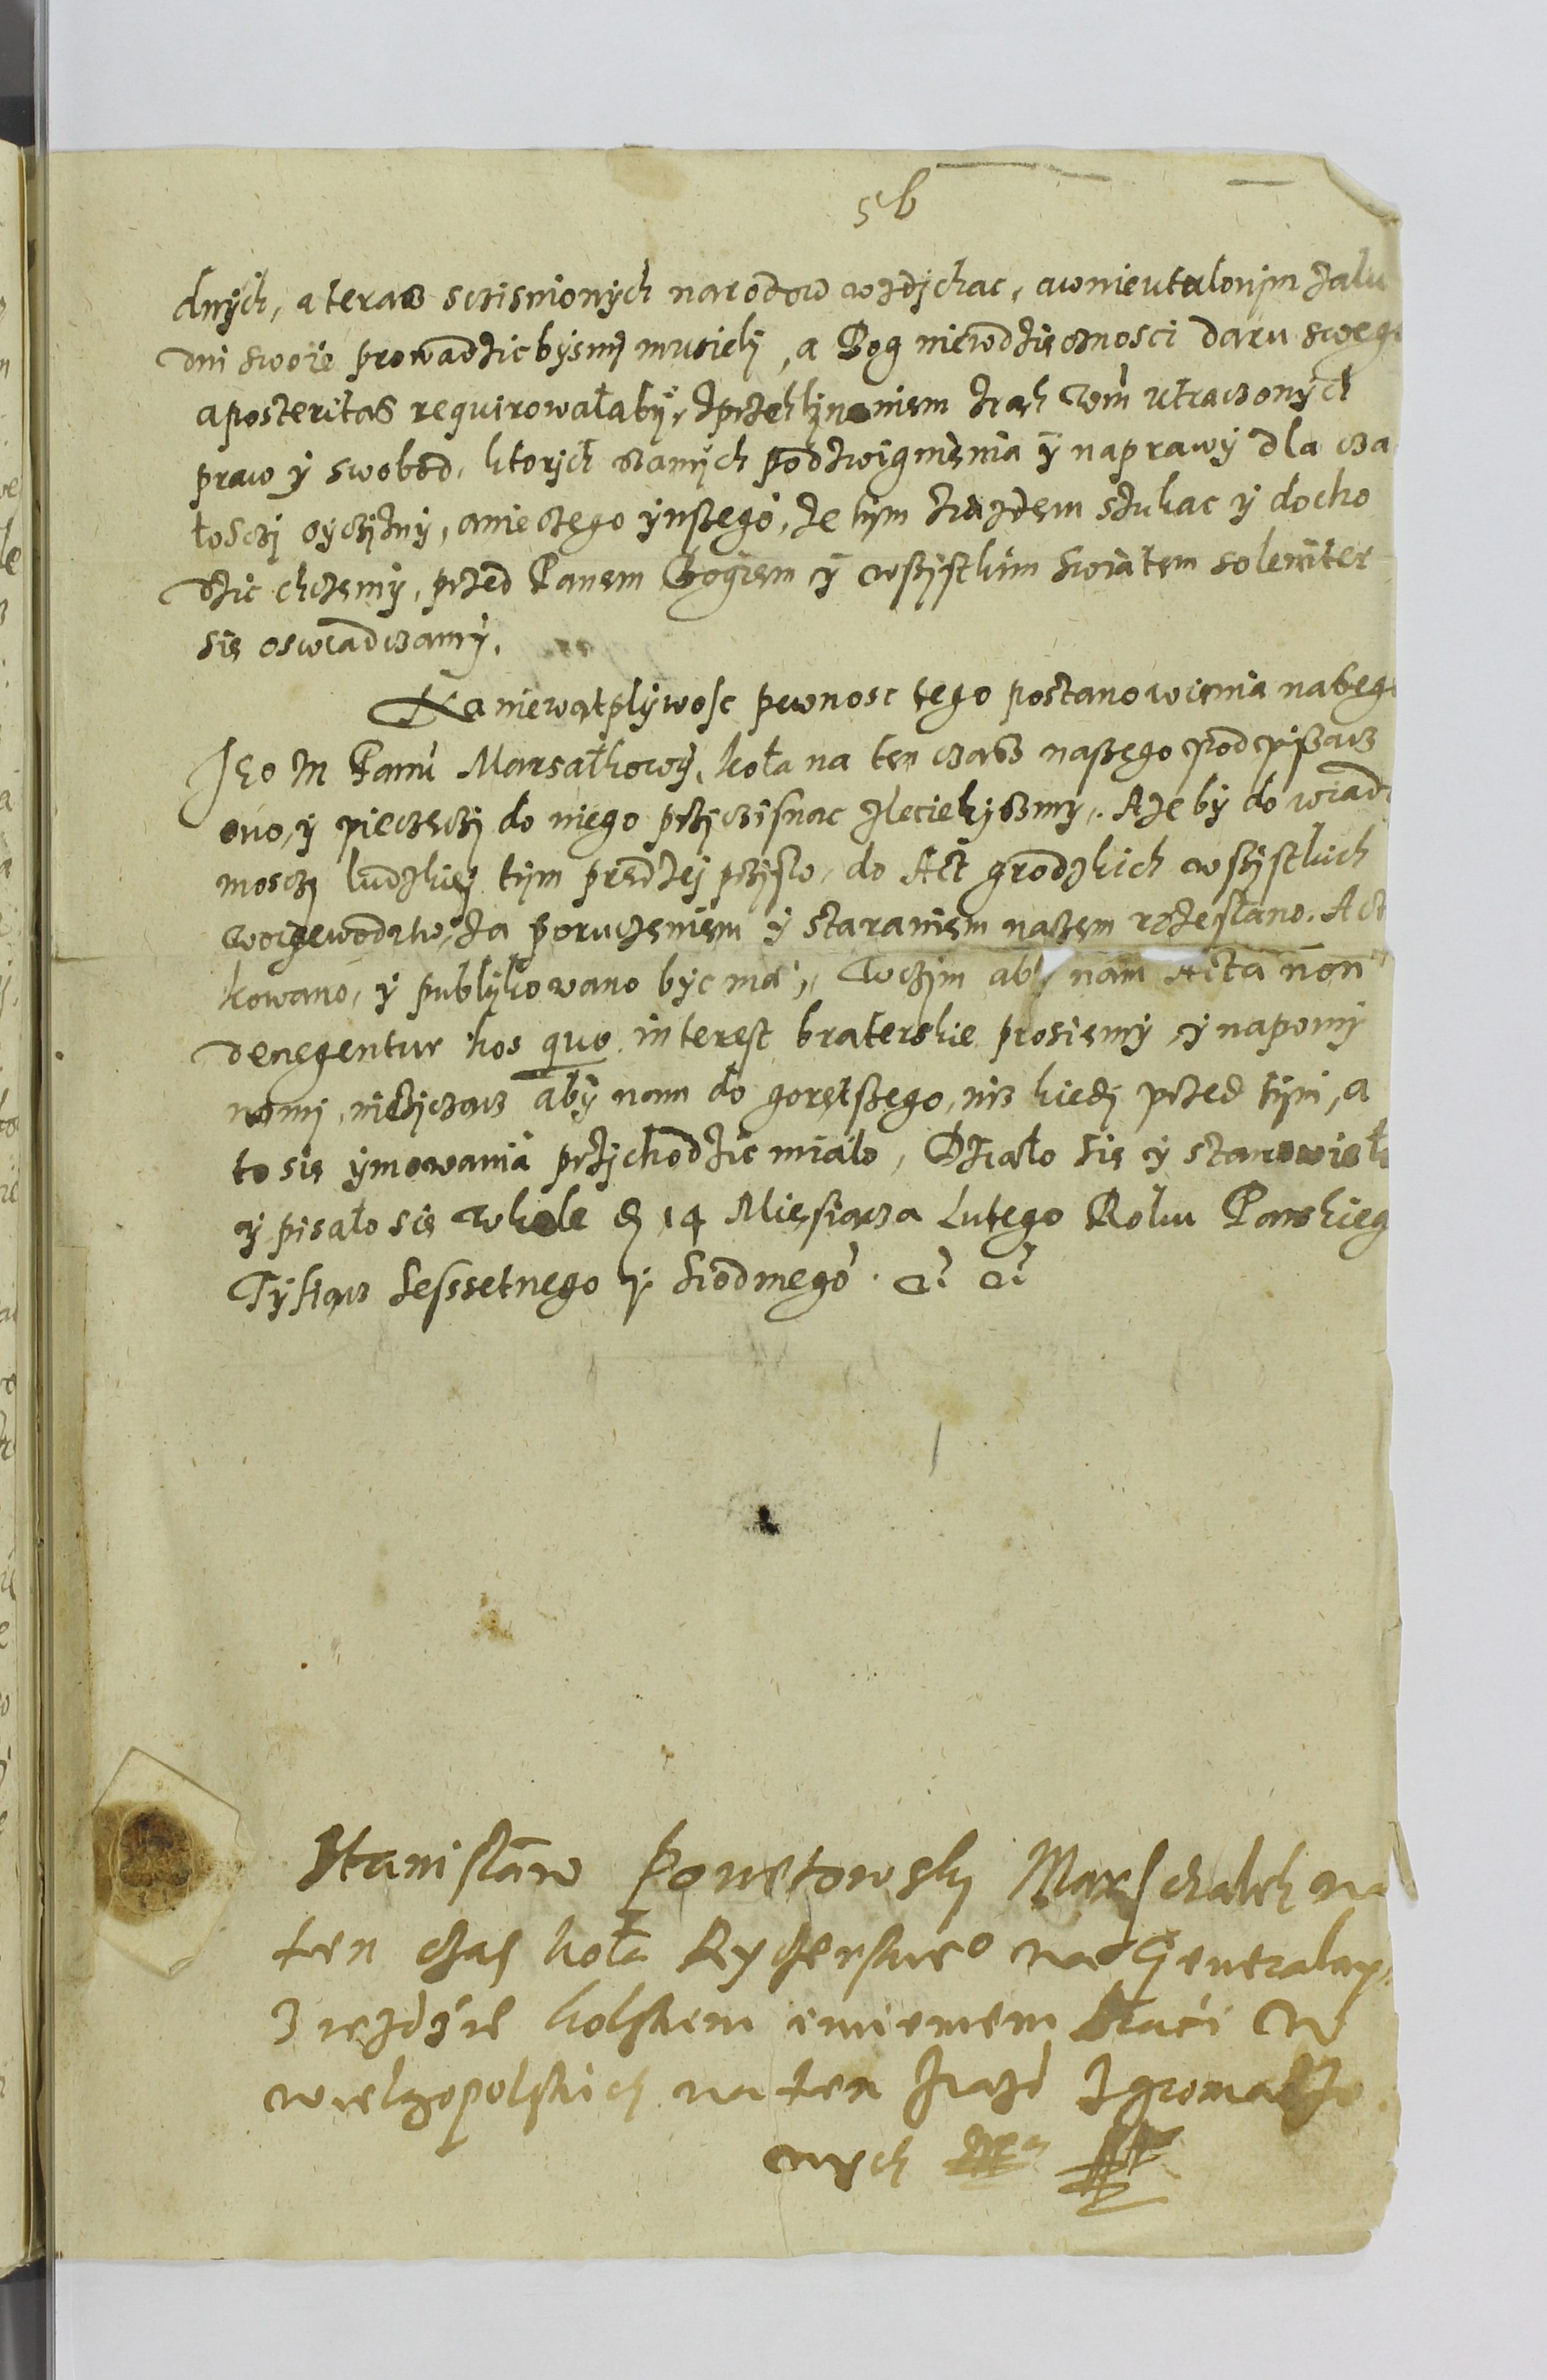 56
dnych, a teraz scisnionych narodow wzdychac, a w nieutulonym zalu
dni swoie prowadzic bysmy musiely, a Bog niewdzięcznosci daru swego
a posteritas requirowałaby, z przeklynaniem z rąk w
utraconych
praw y swobod, ktorych samych podzwignienia y naprawy dla ca
łosczy oyczyzny, a nieczego ynszego, ze tym ziazdem szukac y docho
dzic chczemy, przed Panem Bogiem y wszystkim swiatem soleniter
się oswiadczamy.
Na niewątplywosc pewnosc tego postanowienia nasego
Je° M Panu Marsałkowy, koła na ten czas naszego podpisac
ono, y pieczęczy do niego przycisnac zlecielysmy. A ze by do wiado
mosczy ludzkiey tym prędzey przyslo, do Act grodzkich wszystkich
woiewodztw, za poruczeniem y staraniem naszem rozesłano. Act
kowano, y publykowano byc ma, w czym aby nam Acta non
denegentur hos quo interest braterskie prosiemy y napomy
namy, nieżycząc aby nam do gorętszego, niz kiedy przed tym, a
to się ymowania przychodzic miało, Działo się y stanowieło
y pisało się w Kole D 14 Miesiąca Lutego Roku Panskieg
Tysiąc sesssetnego y siodmego.
Stanisław Ponetowsky Marschalek na
ten czas koła Rycerskie° na Generalny
Ziezdzie kolskem imieniem Braci W
wielgopolskich na ten ziazd zgromadzo
nych